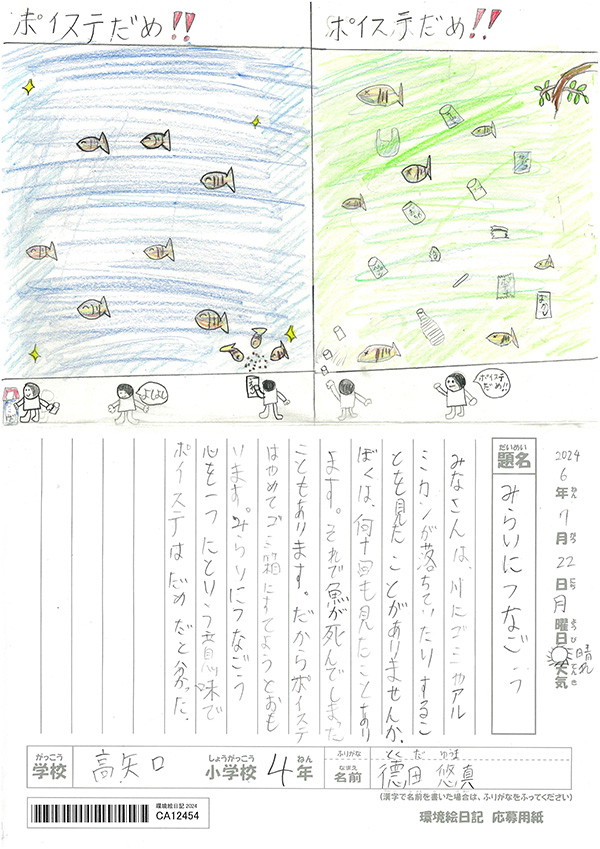 ポイステだめ!!
ポイステだめ!!
よしよし
ポイステ
だめ!!
おかし
2024
6年7月22日月曜日
ねん
がつ
にち
ようび
天気
てんき
晴れ
だいめい
題名
みらいにつなごう
みなさんは、川にゴミやアル
ミカンが落ちていたりするこ
とを見たことがありませんか。
ぼくは、何十回も見たことあり
ます。それで魚が死んでしまった
こともあります。だからポイステ
はやめてゴミ箱にすてようとおも
います。みらいにつなごう
心を一つたという意味で
ポイステはだめだと分かった。
がっこう
学校
高矢口
しょうがっこう
小学校
4年
ねん
ふりがな
とくだ ゆうま
なまえ
名前
德田 悠真
(漢字で名前を書いた場合は、ふりがなをふってください)
環境絵日記2024
CA12454
環境絵日記 応募用紙